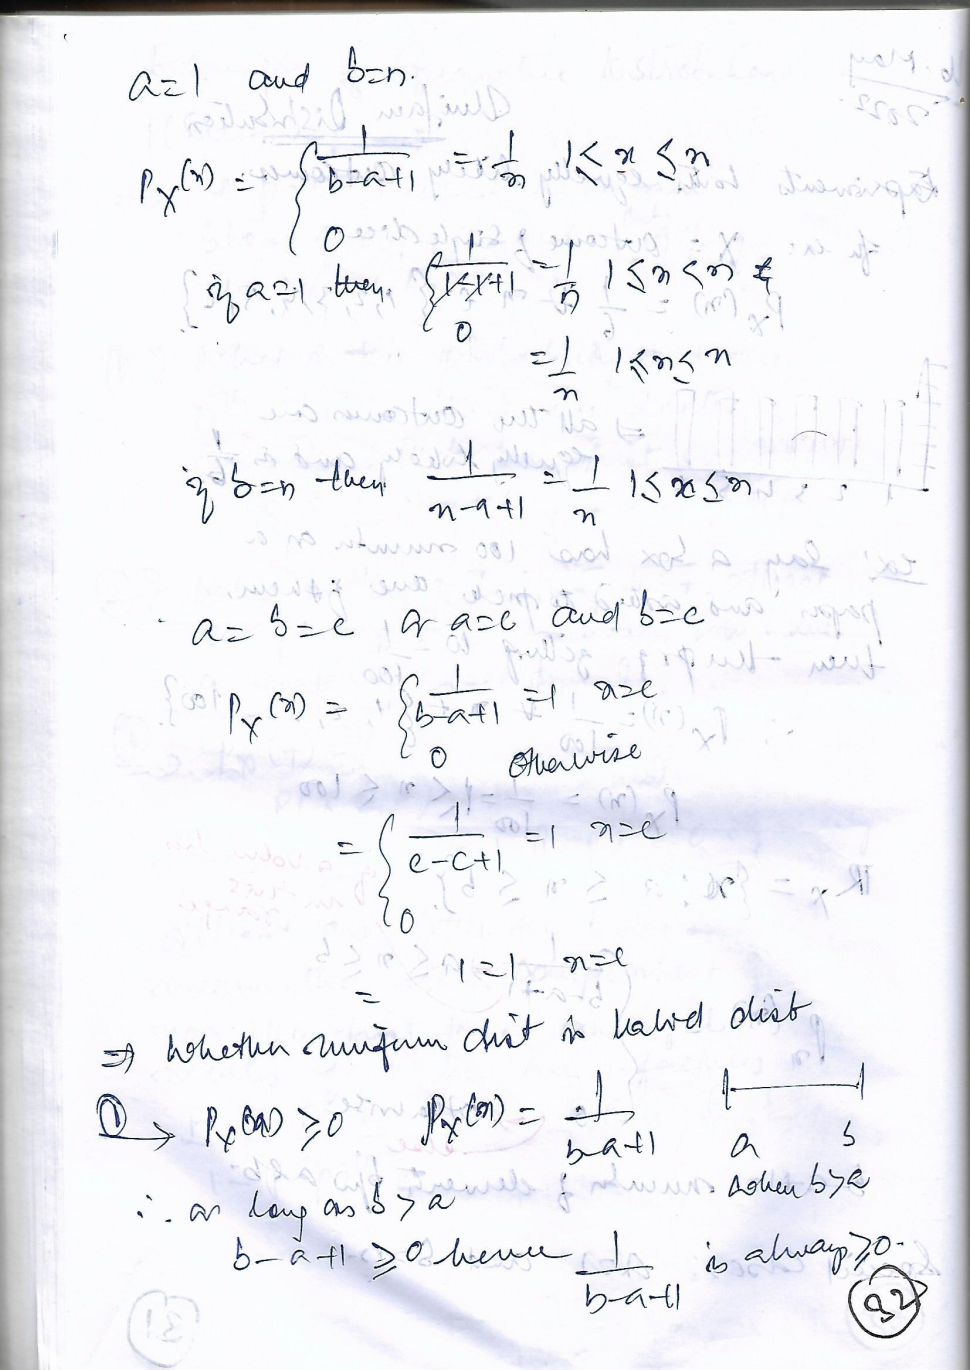 a=1 and b=n.
P_X(x) = { 1/(b-a+1) = 1/n 1≤x≤n
0
if a=1 then { 1/(b-1+1) = 1/n 1≤x≤n
0
= 1/n 1≤x≤n
if b=n then 1/(n-a+1) = 1/n 1≤x≤n
a=b=c or a=c and b=c
P_X(x) = { 1/(b-a+1) =1 x=c
0 otherwise
= { 1/(c-c+1) =1 x=c
0
= 1=1, x=c
⇒ Whether uniform dist is valid dist
① → P_X(x) ≥0 P_X(x) = 1/(b-a+1)
a b
when b>a
∴ as long as b>a
b-a+1 ≥0 hence 1/(b-a+1) is always ≥0.
32